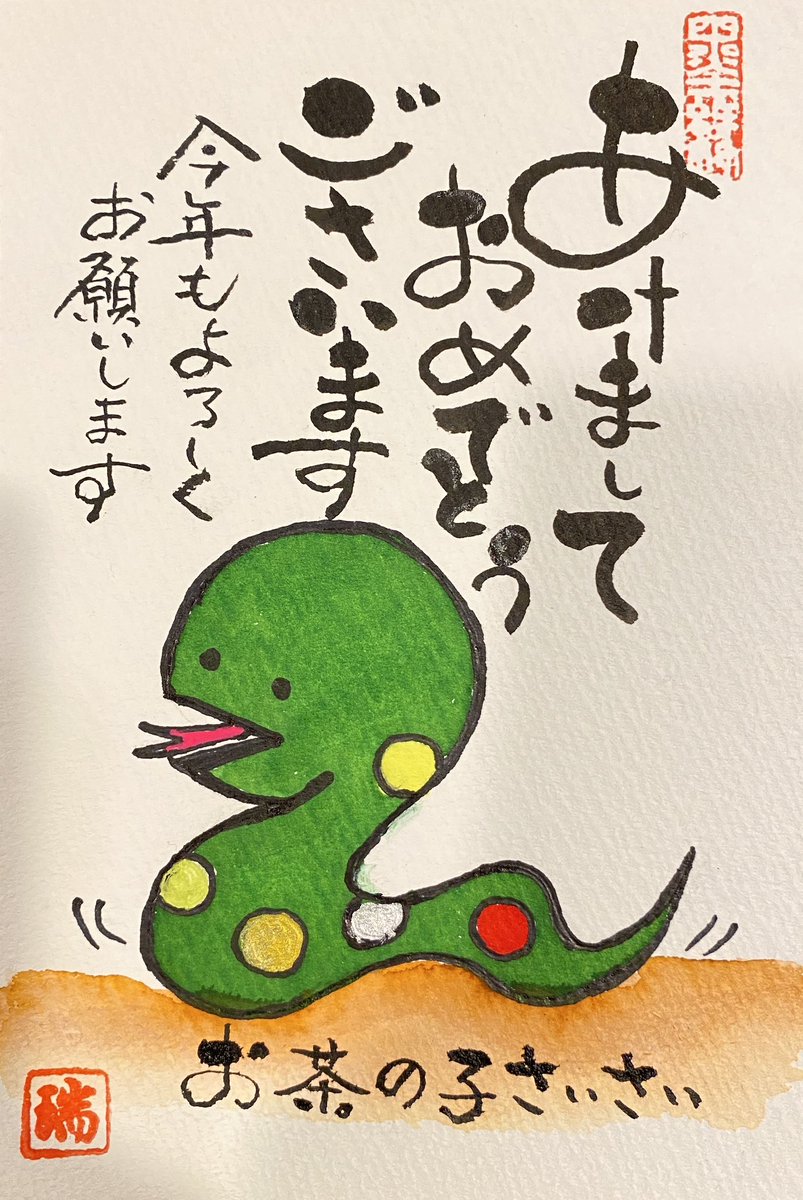 あけまして
おめでとう
ございます
今年もよろしく
お願いします
お茶の子さいさい
瑞